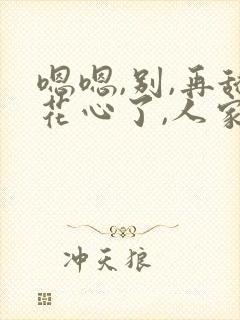 嗯嗯,别,再
花心了,人家
冲天狼